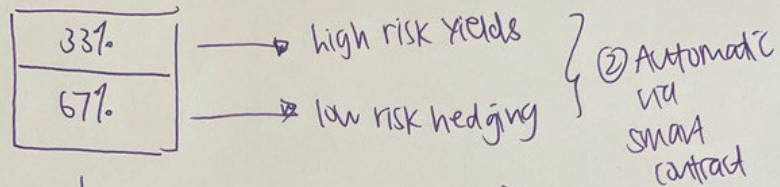 33%
high risk yields
67%
low risk hedging
② Automatic
via
smart
contract